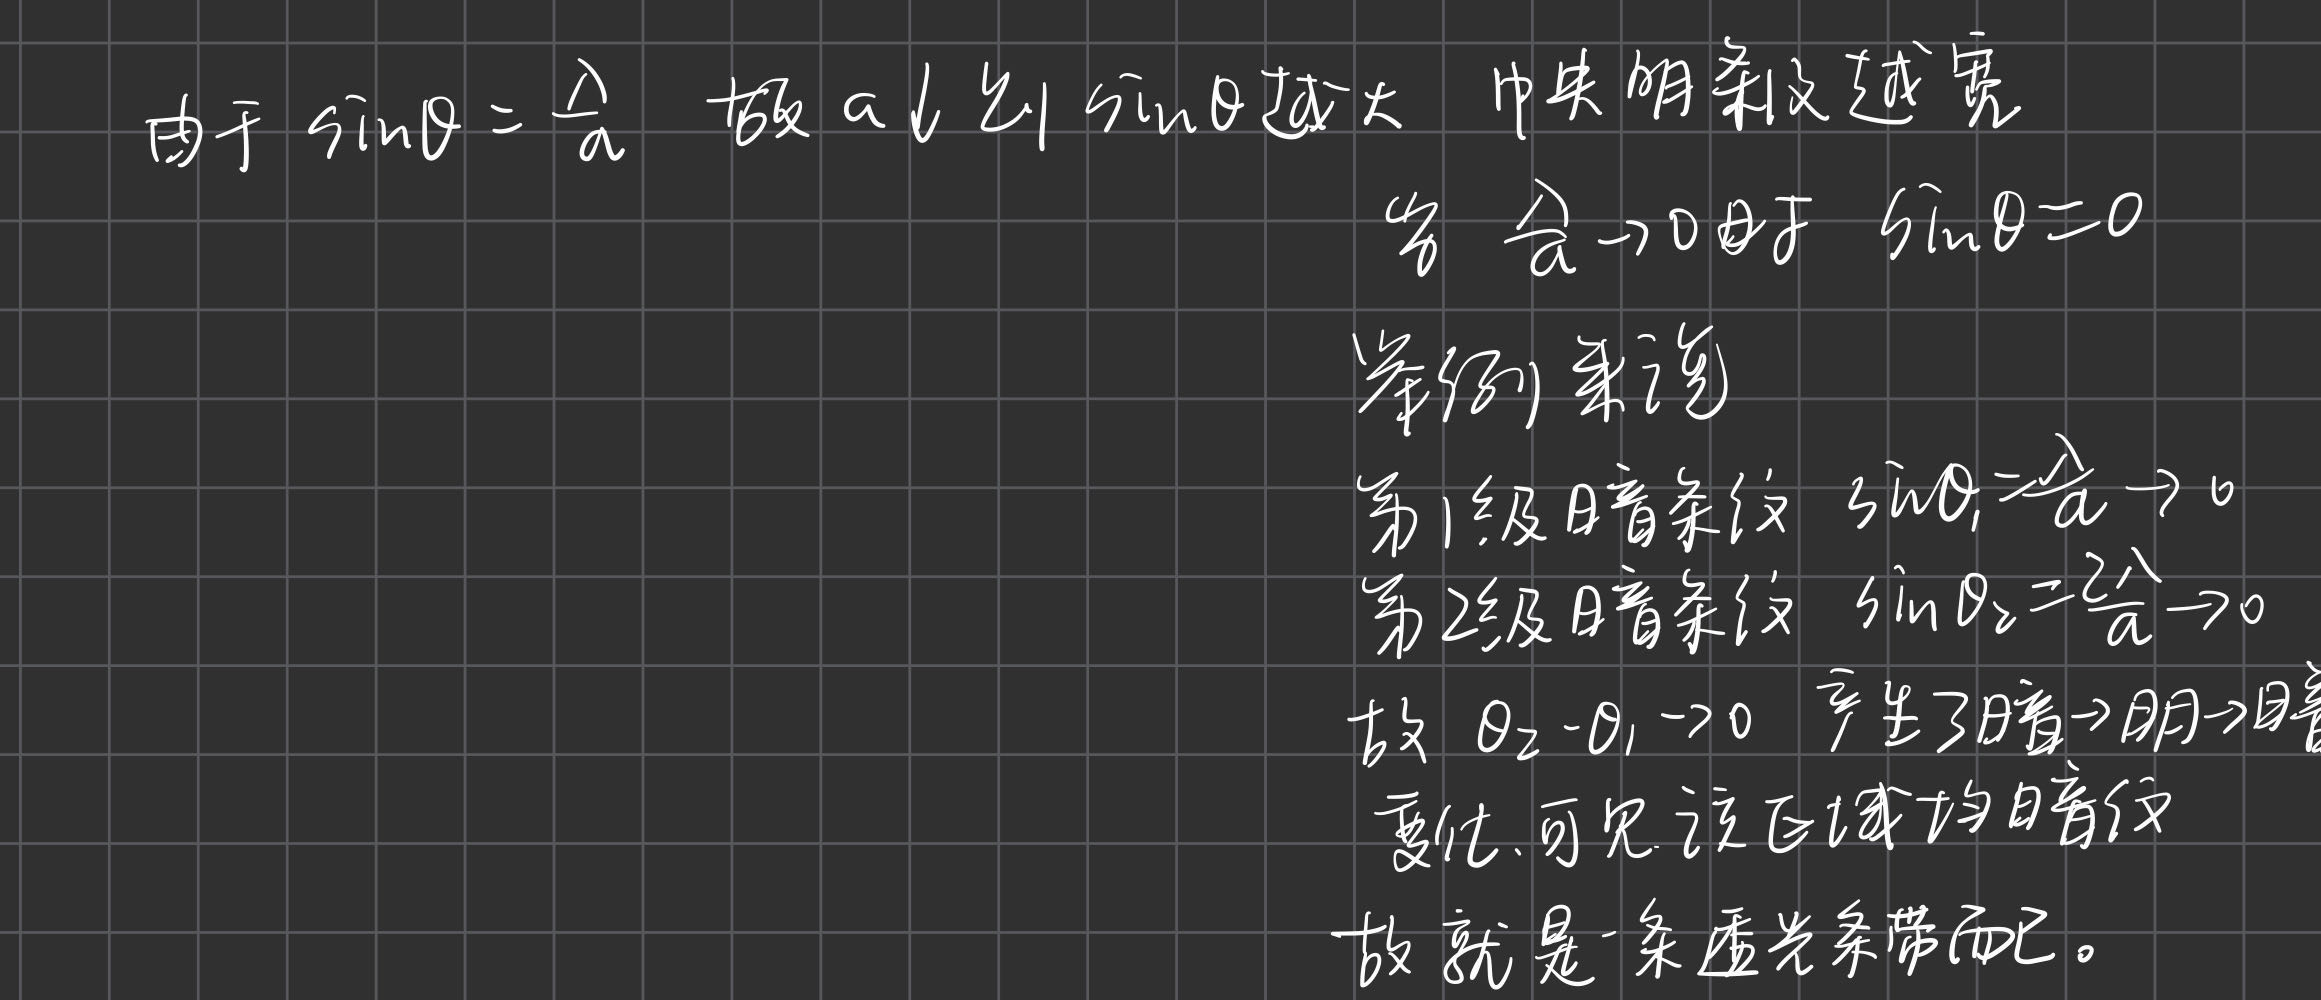 由于 sinθ = λ/a 故 a↓ 则 sinθ 越大 中央明条纹越宽
当 λ/a → 0 时 sinθ = 0
举例来说
第1级暗条纹 sinθ₁ = λ/a → 0
第2级暗条纹 sinθ₂ = 2λ/a → 0
故 θ₂ - θ₁ → 0 产生了暗→明→暗
变化、可见该区域均暗纹
故就是一条光条带而已。